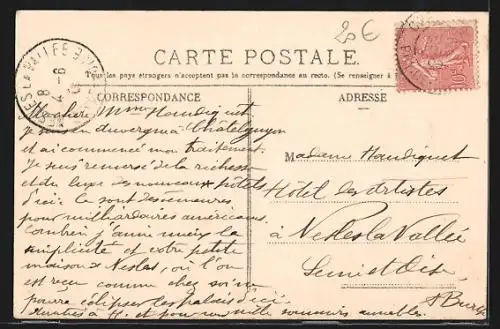 20€
CARTE POSTALE.
Tous les pays étrangers n'acceptent pas la correspondance au recto. (Se renseigner à
CORRESPONDANCE
ADRESSE
NESLES LA VALLÉE
8
4-6
Ma chère Mme Haudiquet
Je suis en Auvergne à Châtelguyon
et ai commencé mon traitement.
Je suis de la richesse
et du luxe des nouveaux hôtels
d'ici. Ce sont des demeures
pour milliardaires américains.
Combien j'aime mieux la
simplicité et votre petite
maison de Nesles, où l'on
est reçu comme chez soi
pourra éclipser les palais d'ici
Amitiés à H. et pour vous mille souvenirs aimables.
Madame Haudiquet
Hôtel des artistes
à Nesles la Vallée
Seine et Oise
10